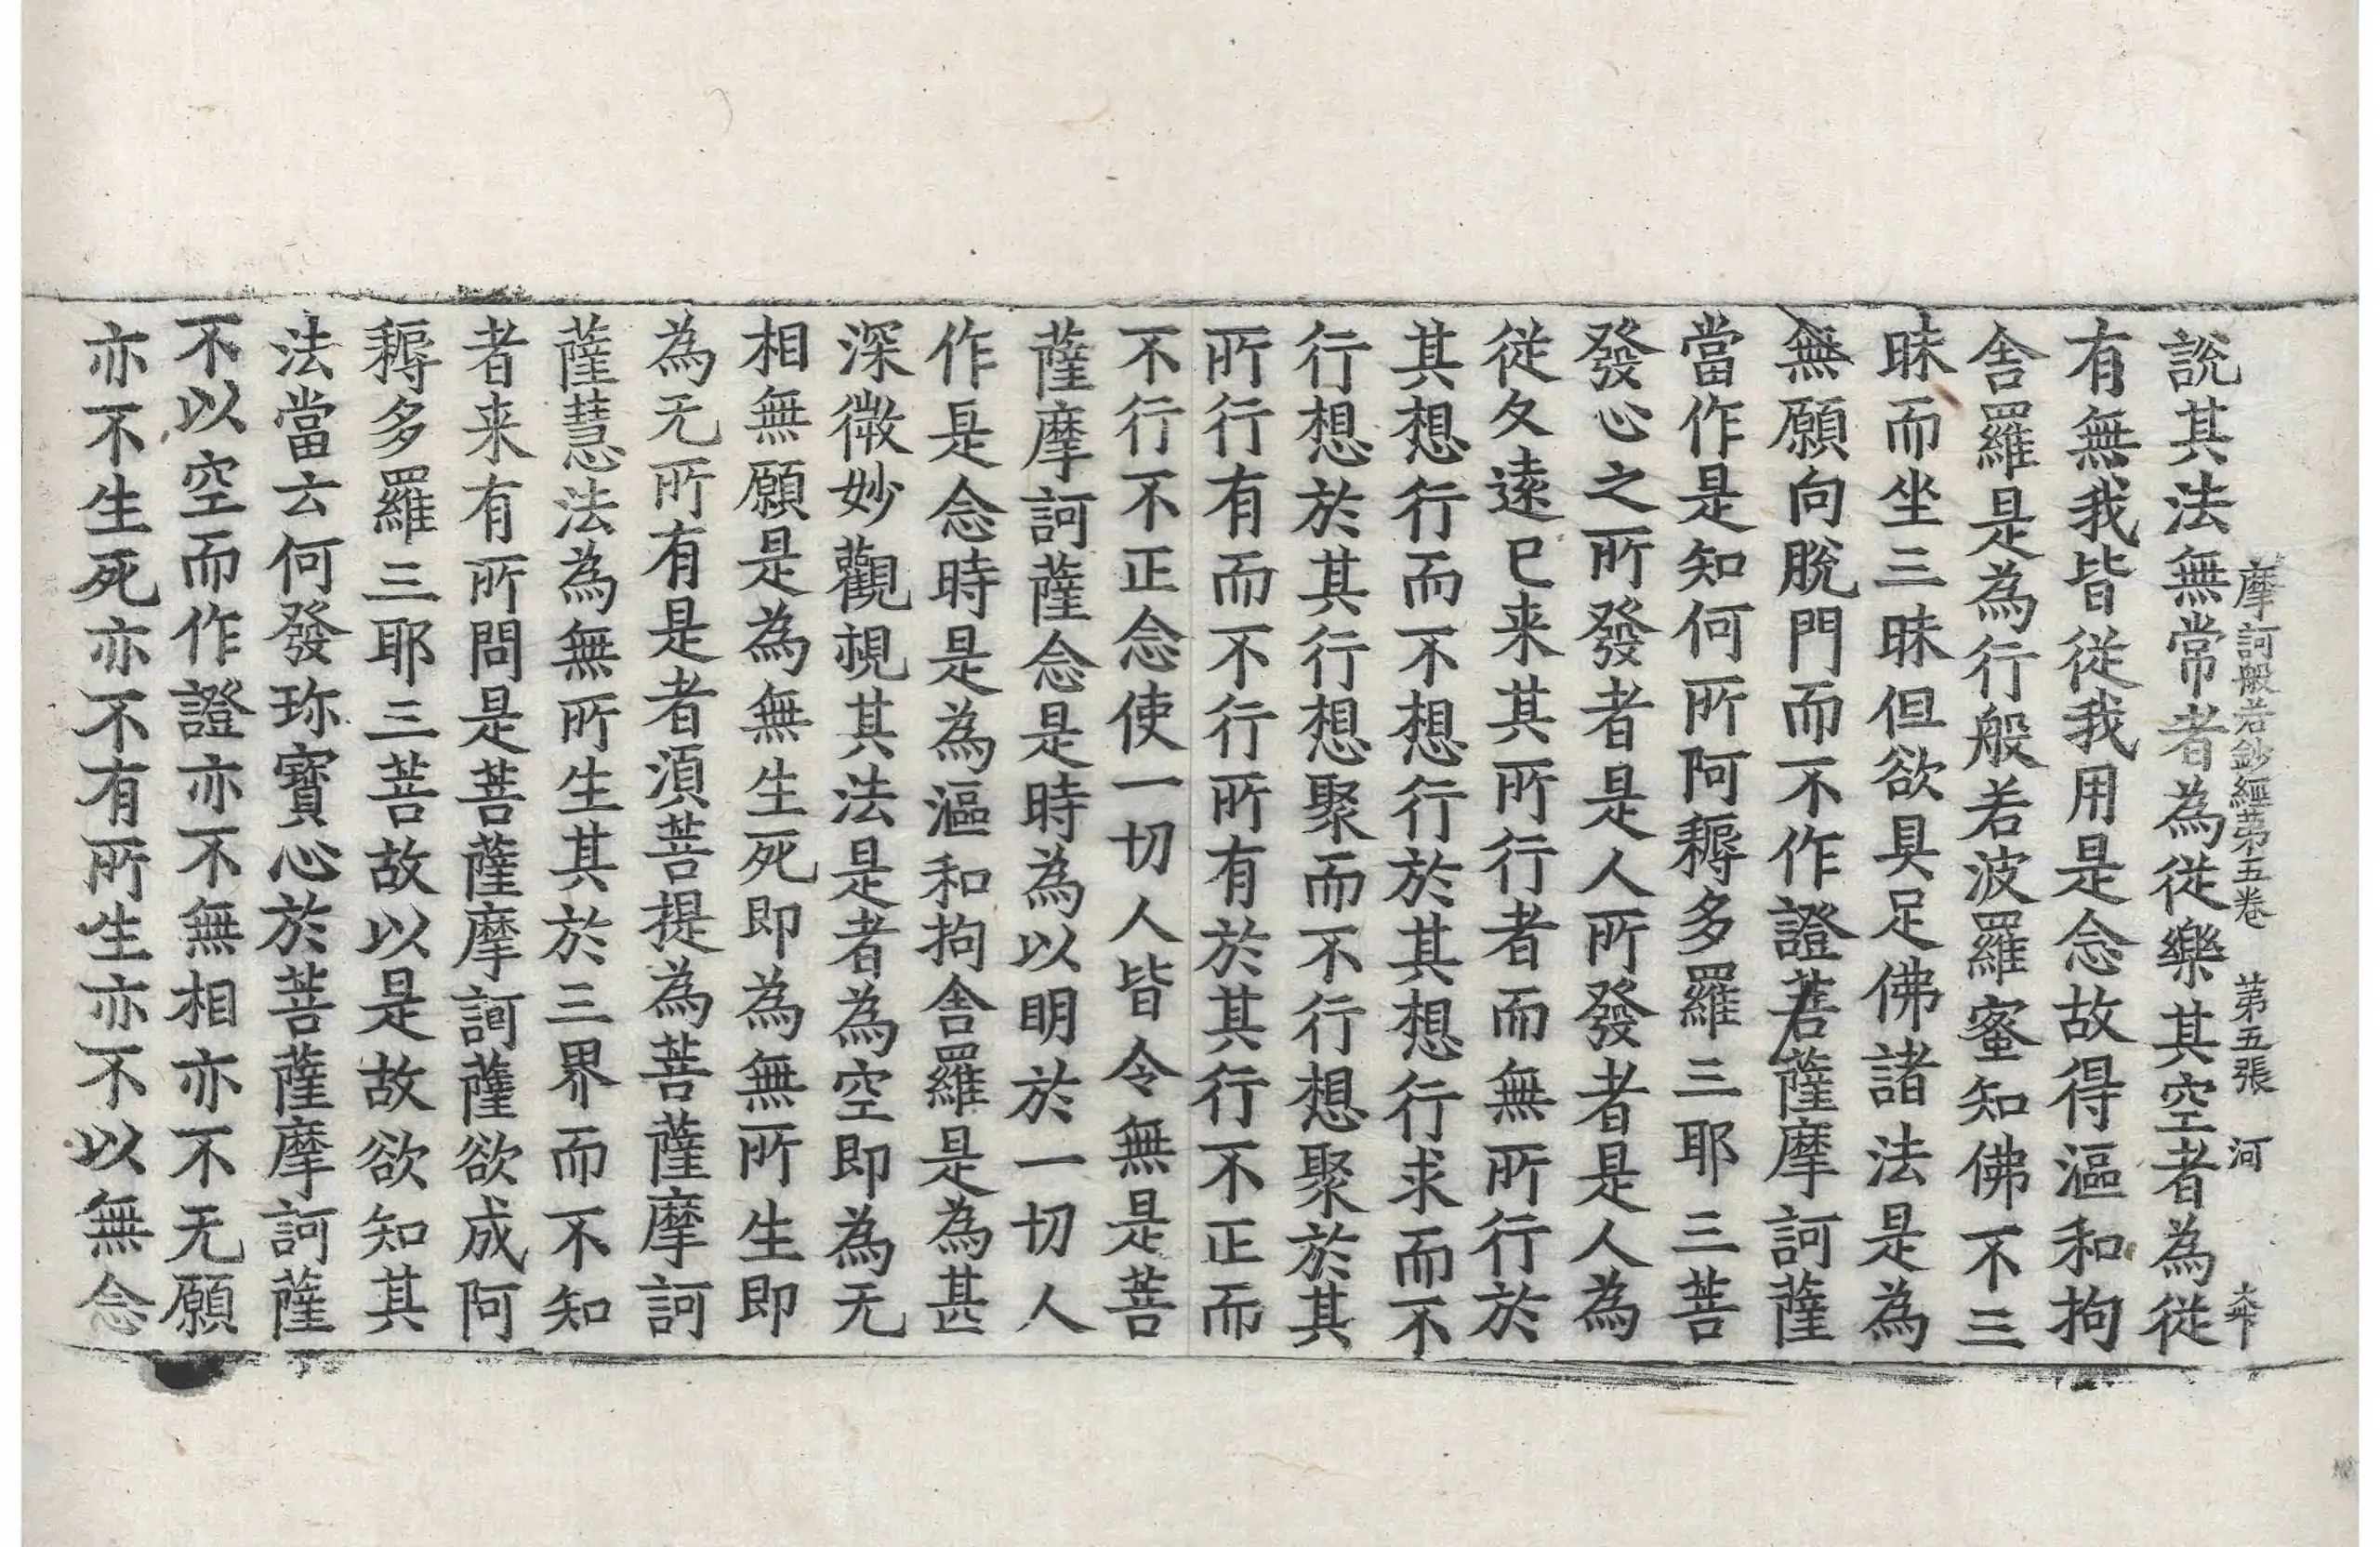 摩訶般若鈔經苐五卷　苐五張　河　大卞
說其法無常者為從樂其空者為從
有無我皆從我用是念故得漚和拘
舍羅是為行般若波羅蜜知佛不三
昧而坐三昧但欲具足佛諸法是為
無願向脫門而不作證菩薩摩訶薩
當作是知何所阿耨多羅三耶三菩
發心之所發者是人所發者是人為
從久遠已来其所行者而無所行於
其想行而不想行於其想行求而不
行想於其行想聚而不行想聚於其
所行有而不行所有於其行不正而
不行不正念使一切人皆令無是菩
薩摩訶薩念是時為以明於一切人
作是念時是為漚和拘舍羅是為甚
深微妙觀視其法是者為空即為无
相無願是為無生死即為無所生即
為无所有是者湏菩提為菩薩摩訶
薩慧法為無所生其於三界而不知
者来有所問是菩薩摩訶薩欲成阿
耨多羅三耶三菩故以是故欲知其
法當云何發珎寶心於菩薩摩訶薩
不以空而作證亦不無相亦不无願
亦不生死亦不有所生亦不以無念